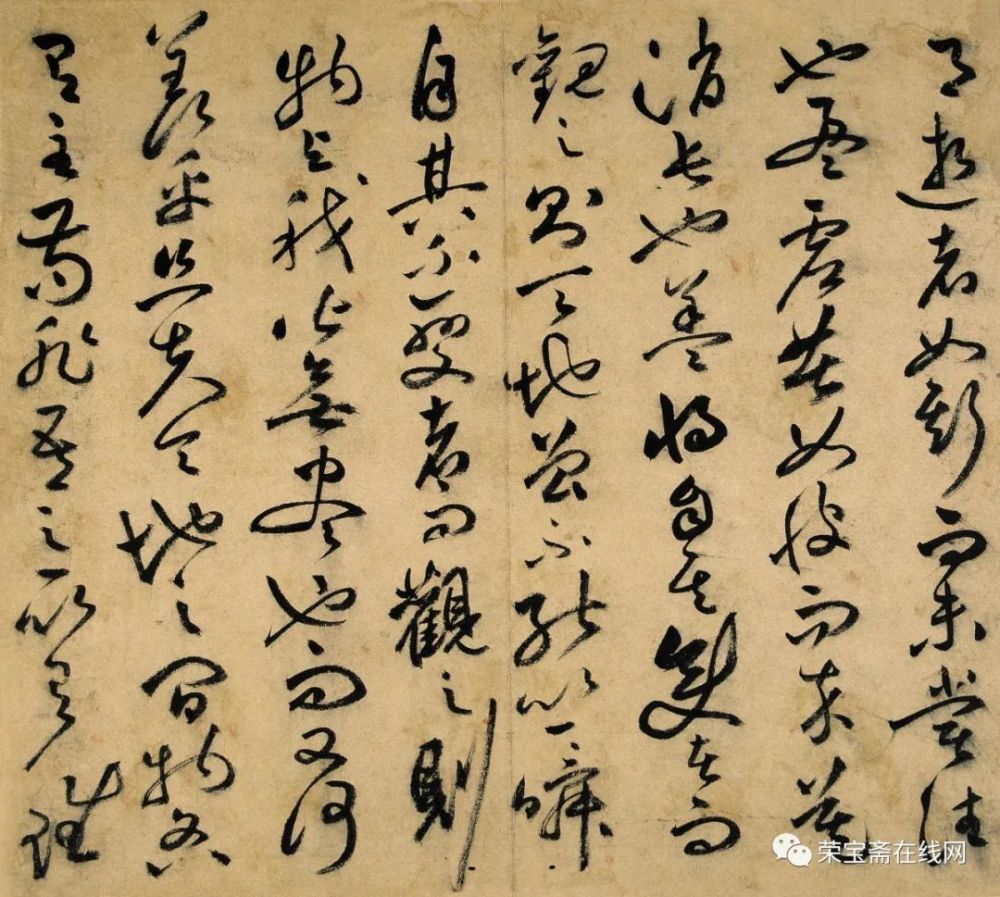 月逝者如斯而未嘗往
也盈虛者如彼而卒莫
消長也蓋將自其變者而
觀之則天地曾不能以一瞬
自其不變者而觀之則
物與我皆無盡也而又何
羨乎且夫天地之間物各
有主苟非吾之所有雖
荣宝斋在线网